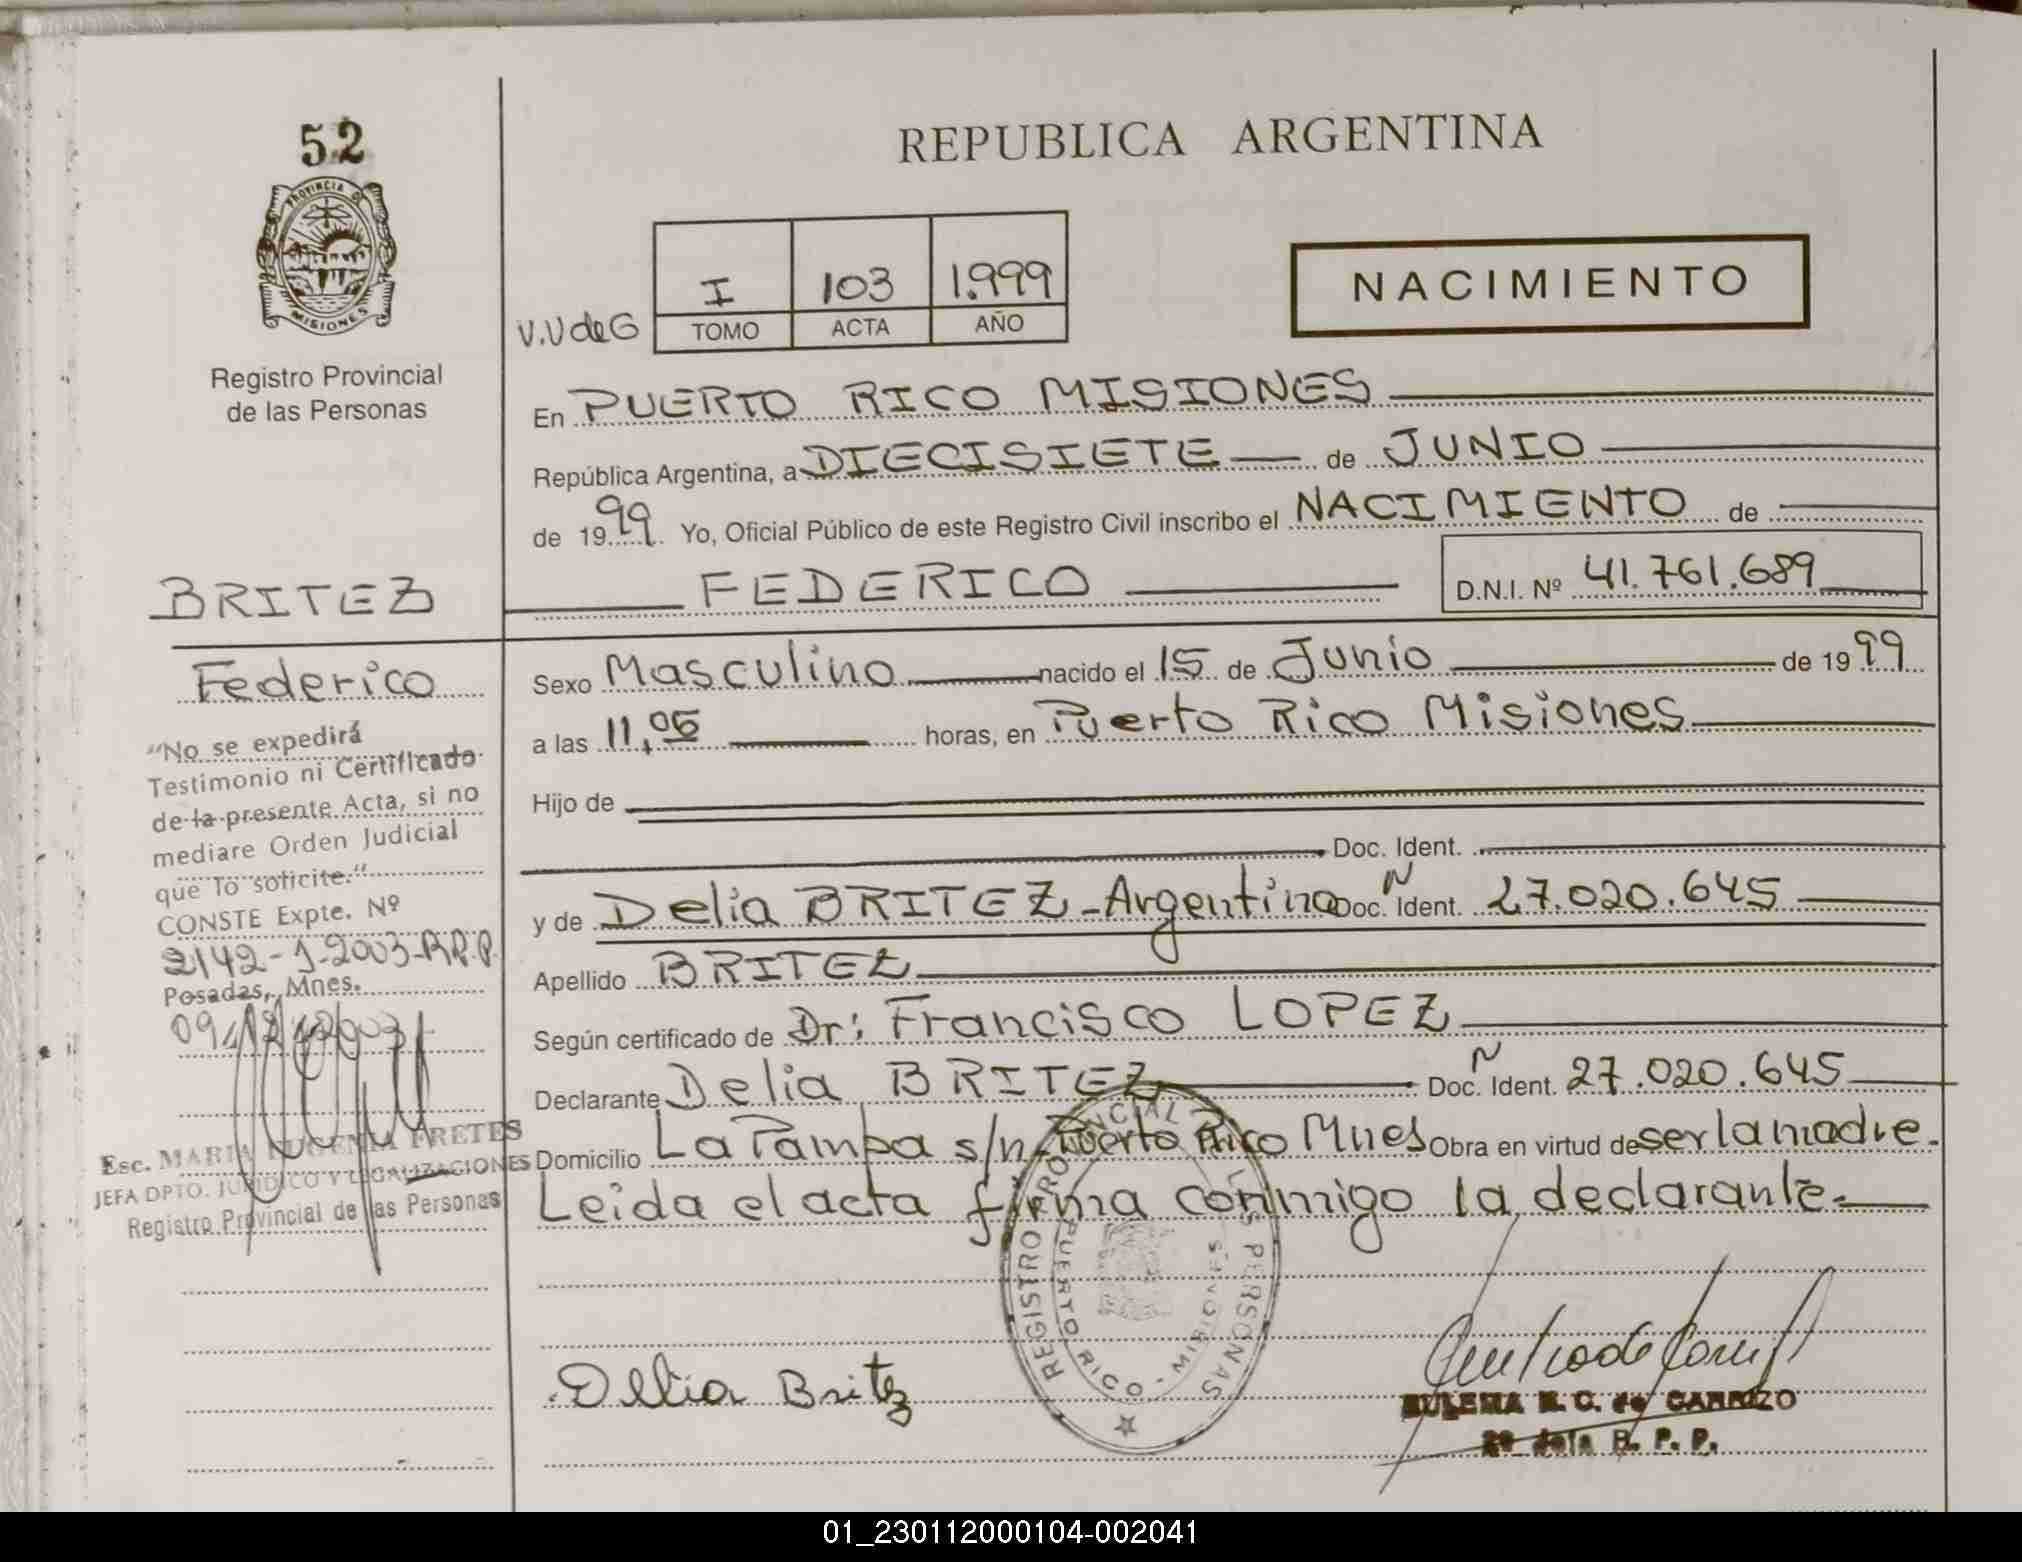 52
PROVINCIA DE
MISIONES
Registro Provincial
de las Personas
REPUBLICA ARGENTINA
V.V de G
I 103 1.999
TOMO ACTA AÑO
NACIMIENTO
En PUERTO RICO MISIONES
República Argentina, a DIECISIETE de JUNIO
de 1999 Yo, Oficial Público de este Registro Civil inscribo el NACIMIENTO de
FEDERICO D.N.I. Nº 41.761.689
BRITEZ
Federico
Sexo Masculino nacido el 15 de Junio de 1999
a las 11,05 horas, en Puerto Rico Misiones
Hijo de
Doc. Ident.
y de Delia BRITEZ - Argentina Doc. Ident. N 27.020.645
Apellido BRITEZ
Según certificado de Dr: Francisco LOPEZ
Declarante Delia BRITEZ Doc. Ident. N 27.020.645
Domicilio La Pampa s/n Puerto Rico Mnes Obra en virtud de ser la madre.
Leida el acta firma conmigo la declarante.
"No se expedirá
Testimonio ni Certificado
de la presente Acta, si no
mediare Orden Judicial
que lo solicite."
CONSTE Expte. Nº
2142-J-2003-R.P.P.
Posadas, Mnes.
09/12/2003
Esc. MARIA EUGENIA FRETES
JEFA DPTO. JURIDICO Y LEGALIZACIONES
Registro Provincial de las Personas
REGISTRO PROVINCIAL DE LAS PERSONAS
PUERTO RICO - MISIONES
Delia Britez
ZULEMA N. C. de CARRIZO
2º Jefa R. P. P.
01_230112000104-002041